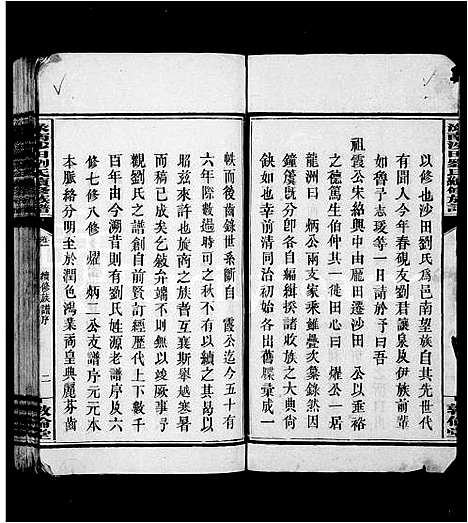 以修也沙田劉氏為邑南望族自其先世代
有聞人今年春硯友劉君讓泉及伊族前輩
如魯子志瑗等一日請於予曰吾
祖霞公宋紹興中由龎田遷沙田 公垂裕
之德篤生伯仲其一徙田心曰 燿公一居
龍洲曰 炳公兩支家乘雖疊次彙錄然因
鐘簴既分各自編緝揆諸收族之大典尚
缺如也幸前清同治初各出舊牒彙成一
帙而後齒錄世系斷自 霞公迄今五十有
六年際此過時可之秋不有以續之其曷以
昭茲來許也族商之族耆互襄斯舉越寒暑
而稿已成矣乞敘弁端不則無以竣厥事予
觀劉氏之譜創自前賢訂經歷代上下數千
百年由今溯昔則有劉氏姓源老譜序及六
修七修八修 燿 炳二公支譜序元元本
本脈絡分明至於潤色鴻業両皇典麗芬齒
漢南沙田劉氏續修族譜
卷
續修族譜序
二
敦倫堂